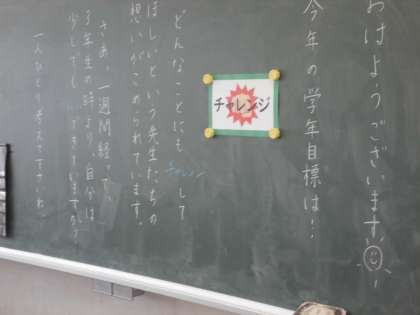 おはようございます
今年の学年目標は！！
チャレンジ
どんなことにもチャレンジして
ほしいという先生たちの
想いがこめられています。
さあ、一週間経って、
3年生の時より、自分は
少しでも、できていますか？
一人ひとり考えて下さいね